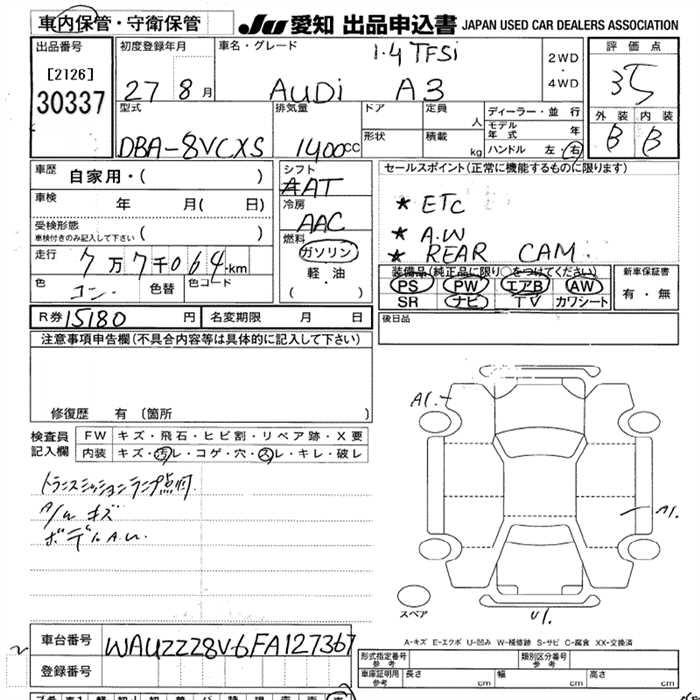 車内保管・守衛保管
JU 愛知 出品申込書 JAPAN USED CAR DEALERS ASSOCIATION
出品番号
[2126]
30337
初度登録年月
27 8月
車名・グレード
1.4 TFSi
AUDi A3
2WD
・
4WD
評価点
3.5
外装 内装
B B
型式
DBA-8VCXS
排気量
1400cc
ドア
形状
定員 人
積載 kg
ディーラー・並行
モデル年式 年
ハンドル 左・右
車歴 自家用・( )
車検 年 月( 日)
受検形態
車検付きのみ記入して下さい ( )
走行 7万7千064km
色 コン. 色替 色コード
シフト
AAT
冷房
AAC
燃料
ガソリン
軽・油
( )
セールスポイント(正常に機能するものに限ります)
* ETC
* A.W
* REAR CAM.
装備品(純正品に限り○をつけてください)
PS PW エアB AW
SR ナビ TV カワシート
新車保証書
有・無
R券 15180 円 名変期限 月 日
後日品
注意事項申告欄(不具合内容等は具体的に記入して下さい)
修復歴 有(箇所 )
検査員
記入欄
FW キズ・飛石・ヒビ割・リペア跡・X要
内装 キズ・汚レ・コゲ・穴・スレ・キレ・破レ
トランスミッションランプ点灯.
A/W キズ
A1.
A1.
U1.
スペア
A-キズ E-エクボ U-凹み W-補修跡 S-サビ C-腐食 XX-交換済
車台番号 WAUZZZ8V6FA127367
登録番号
形式指定番号
参考
類別区分番号
参考
車庫証明用
参考
長さ cm 幅 cm 高さ cm